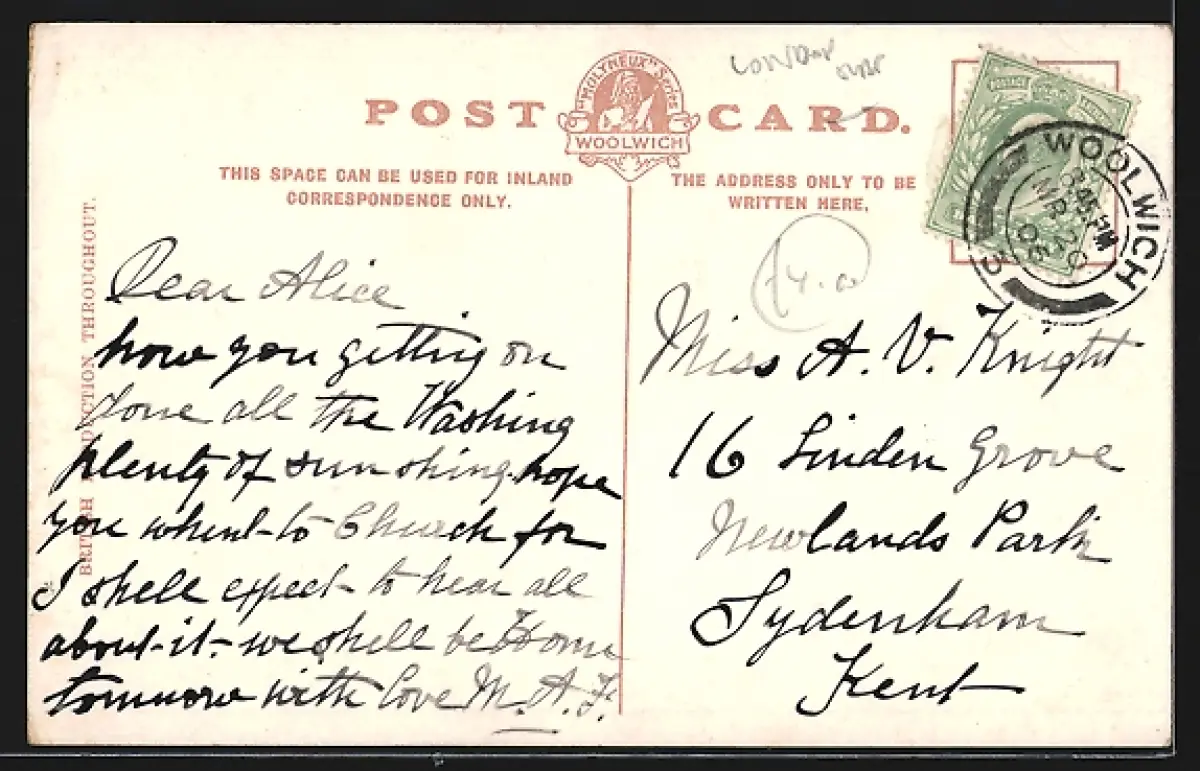 LONDON
"MOLYNEUX" Series
POST CARD.
WOOLWICH
THIS SPACE CAN BE USED FOR INLAND
CORRESPONDENCE ONLY.
THE ADDRESS ONLY TO BE
WRITTEN HERE.
WOOLWICH
8.45 PM
MR 20
06
3
BRITISH PRODUCTION THROUGHOUT.
Dear Alice
how you getting on
done all the Washing
plenty of sun shing hope
you whent to Church for
I shell expect to hear all
about it - we shell be Home
tomorrow with love M. A. F.
Miss A. V. Knight
16 Linden Grove
Newlands Park
Sydenham
Kent